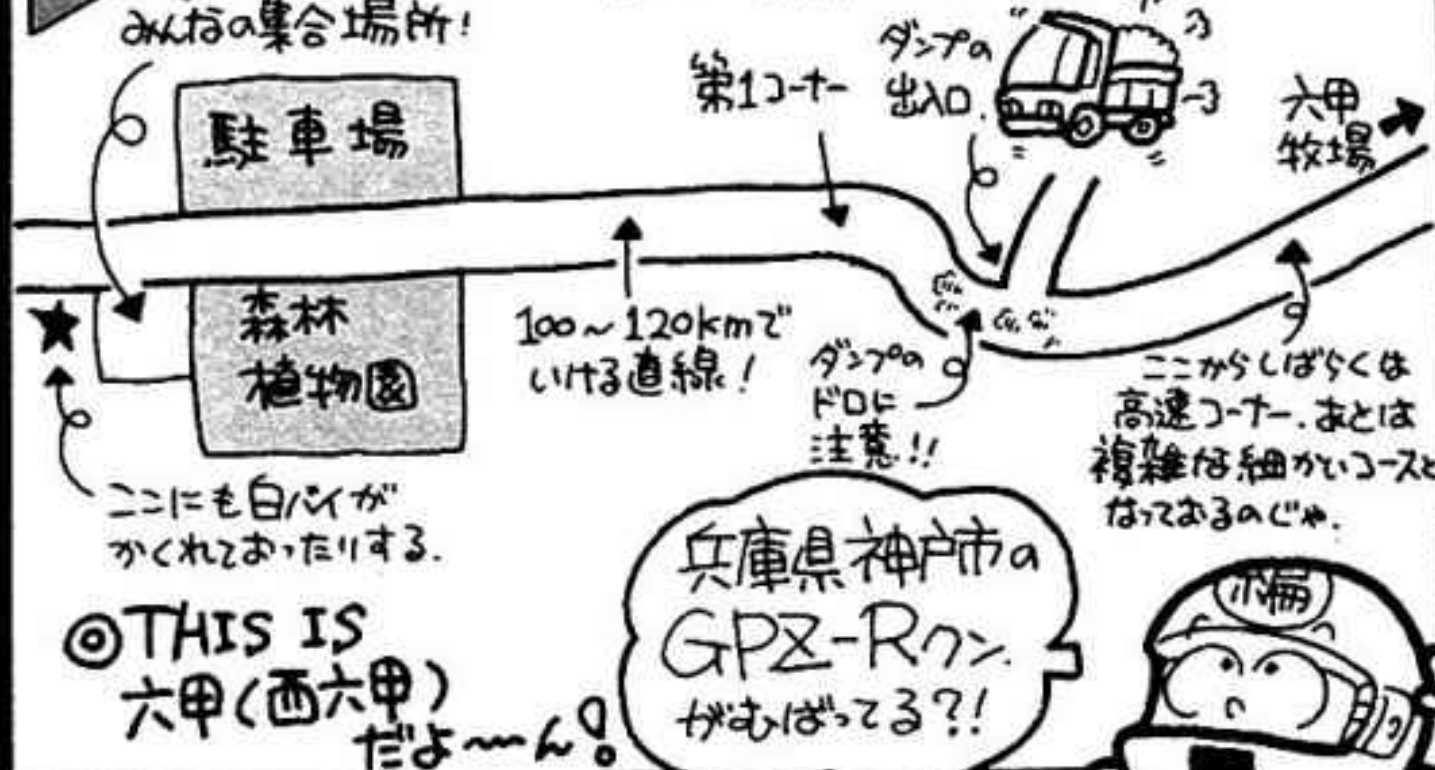 みんなの集合場所!
駐車場
第1コーナー
ダンプの
出入口.
六甲
牧場
森林
植物園
100〜120kmで
いける直線!
ダンプの
ドロに
注意!!
ここからしばらくは
高速コーナー.あとは
複雑な細かいコースと
なっておるのじゃ.
ここにも白バイが
かくれておったりする.
◎THIS IS
六甲(西六甲)
だよ〜〜ん!
兵庫県神戸市の
GPZ-Rクン.
がむばってる?!